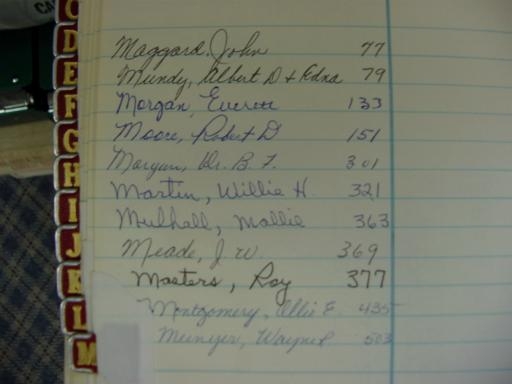 CA
C
D
E
F
G
H
I
J
K
L
M
Maggard, John 77
Mundy, Albert D & Edna 79
Morgan, Everett 133
Moore, Robert D 151
Dr. B. F. 301
Martin, Willie H. 321
Mulhall, Mollie 363
Meade, J. W. 369
Masters, Roy 377
Montgomery, Ollie E. 435
Wayne 503